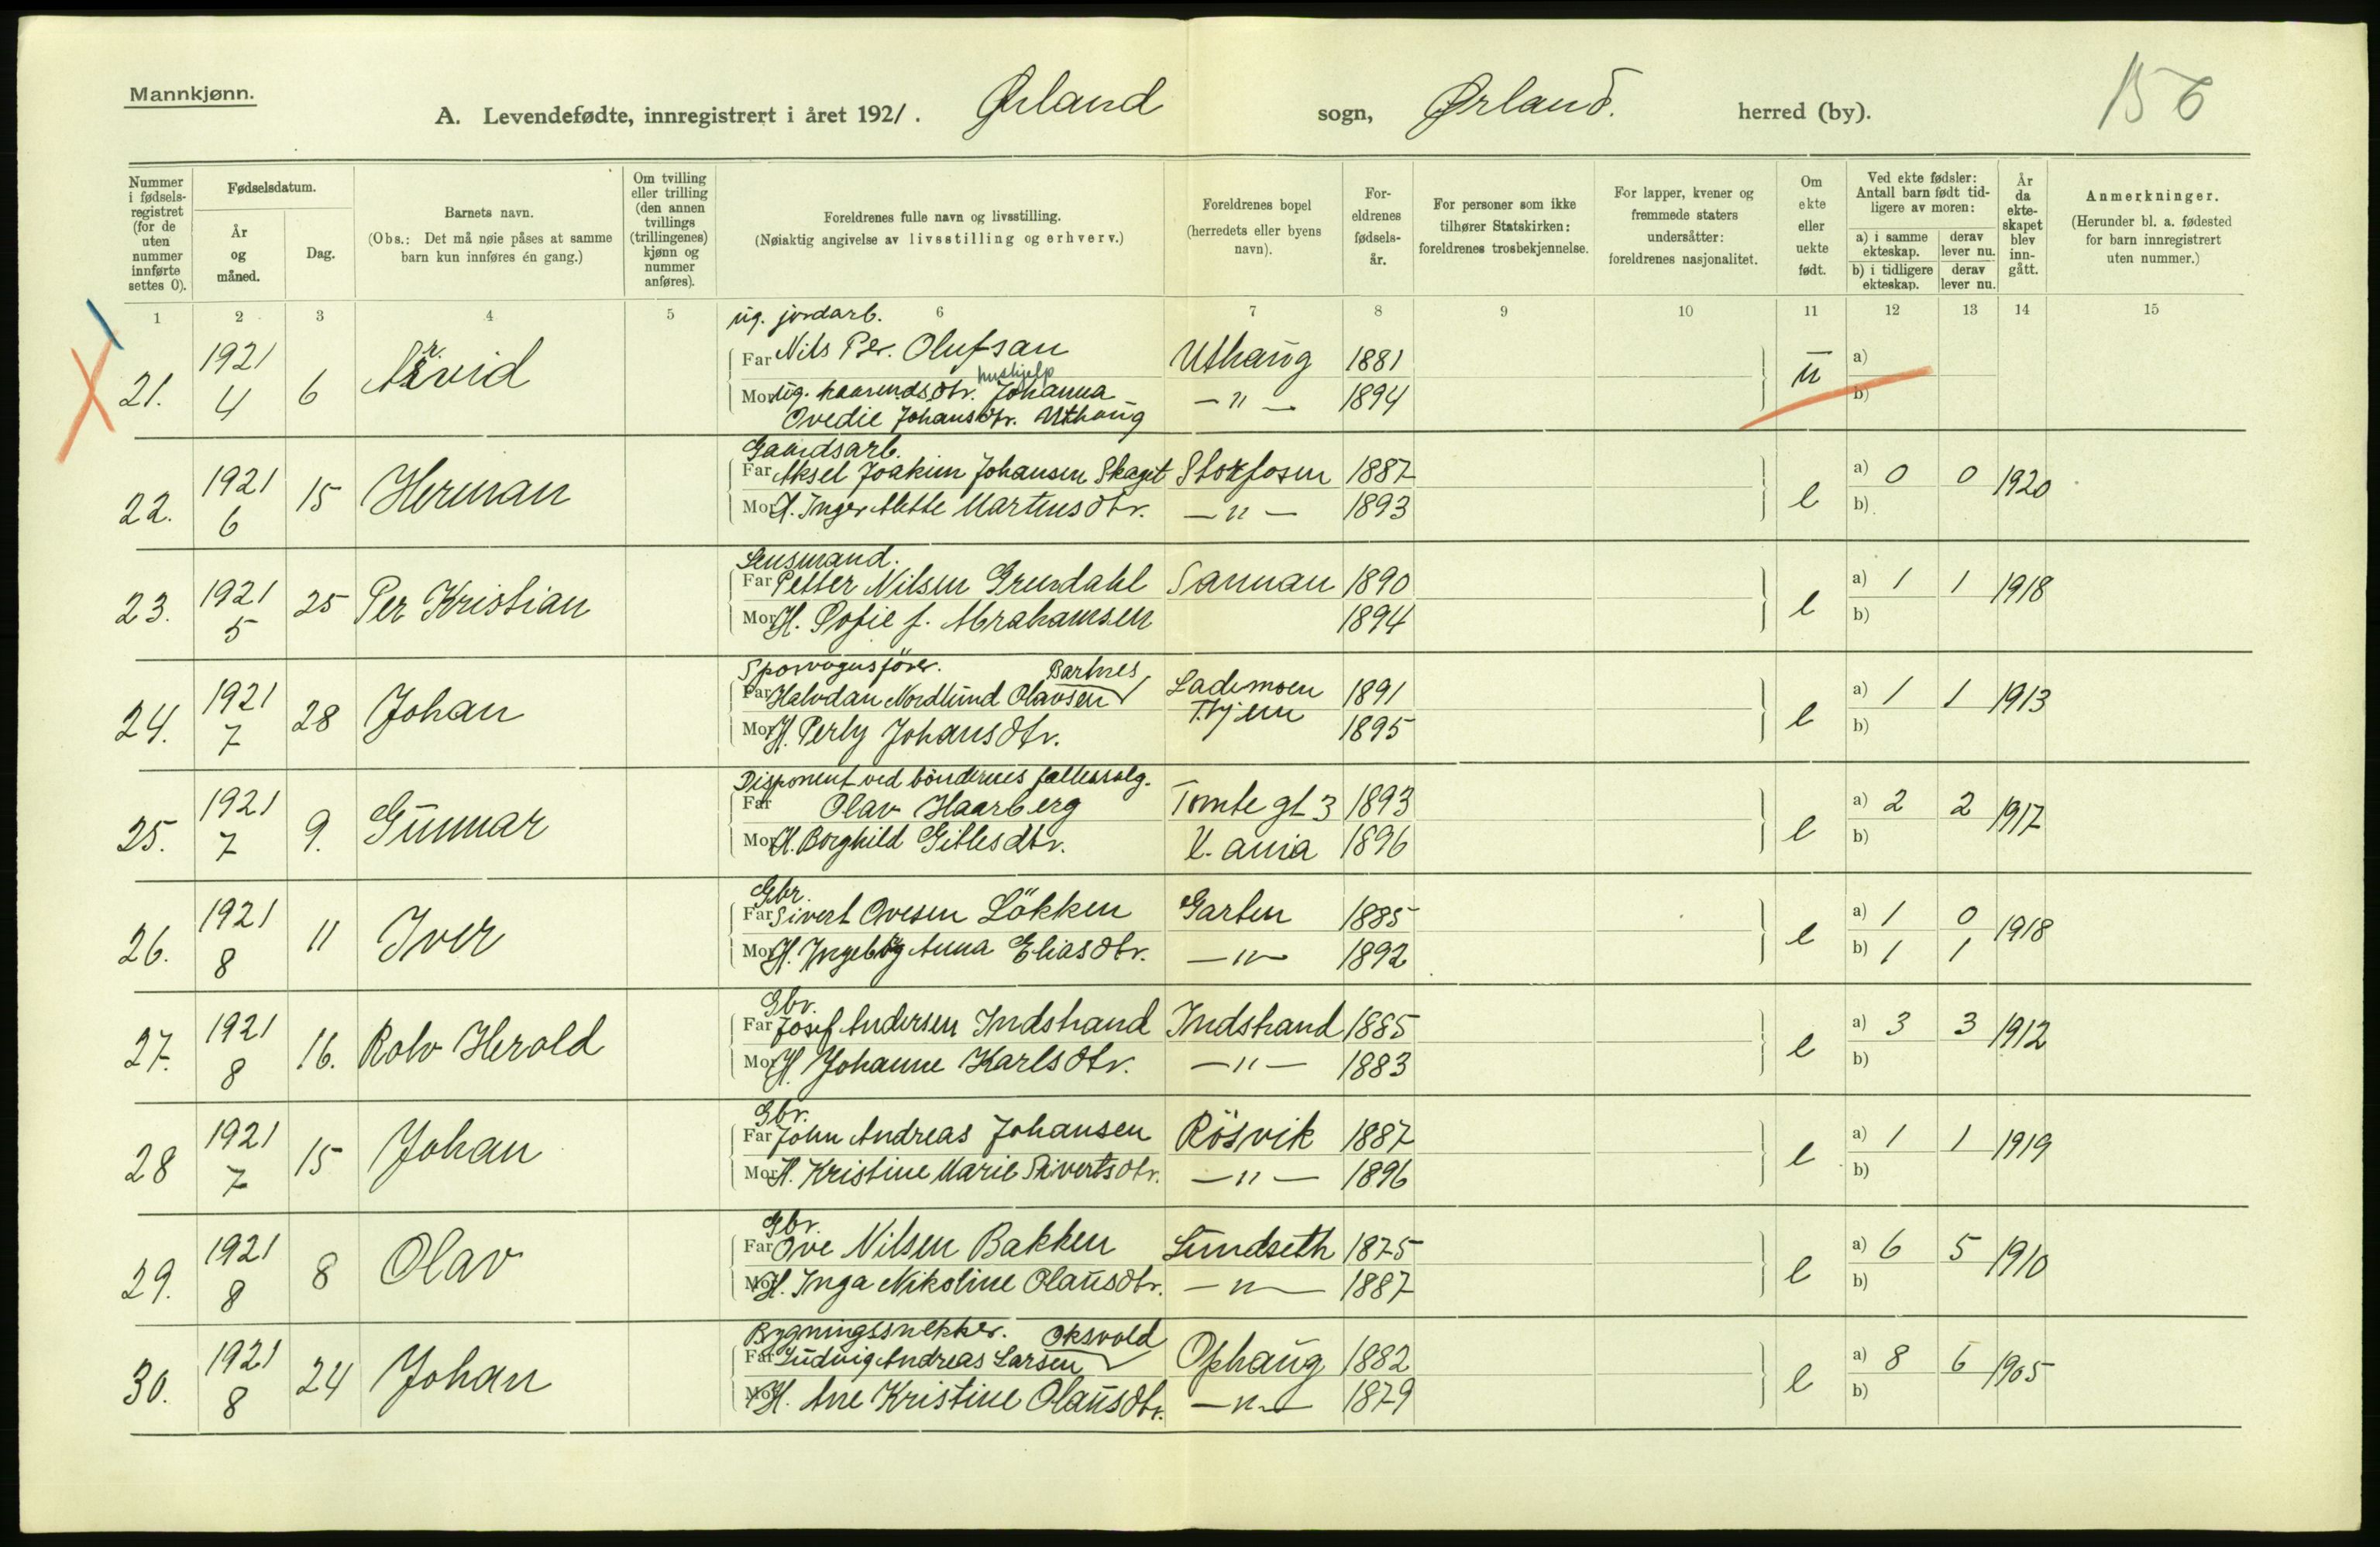 Mannkjønn.
A. Levendefødte, innregistrert i året 1921. Ørland sogn, Ørland. herred (by). 156
Nummer i fødselsregistret (for de uten nummer innførte settes 0).
Fødselsdatum.
År og måned.
Dag.
Barnets navn.
(Obs.: Det må nøie påses at samme barn kun innføres én gang.)
Om tvilling eller trilling (den annen tvillings (trillingenes) kjønn og nummer anføres).
Foreldrenes fulle navn og livsstilling.
(Nøiaktig angivelse av livsstilling og erhverv.)
Foreldrenes bopel (herredets eller byens navn).
Foreldrenes fødselsår.
For personer som ikke tilhører Statskirken: foreldrenes trosbekjennelse.
For lapper, kvener og fremmede staters undersåtter: foreldrenes nasjonalitet.
Om ekte eller uekte født.
Ved ekte fødsler: Antall barn født tidligere av moren:
a) i samme ekteskap. derav lever nu.
b) i tidligere ekteskap. derav lever nu.
År da ekteskapet blev inngått.
Anmerkninger.
(Herunder bl. a. fødested for barn innregistrert uten nummer.)
1 2 3 4 5 6 7 8 9 10 11 12 13 14 15
ug. jordarb.
21. 1921 4 6 Arvid Far Nils Per. Olufsan Uthaug 1881 u a)
hushjelp
Mor ug. Johanna — " — 1894 b)
Ovedie Johansdtr. Uthaug
Gaardsarb.
22. 1921 6 15 Herman Far Aksel Joakim Johansen Skaget Storfosen 1887 e a) 0 0 1920
Mor H. Inger Mette Martinsdtr. — " — 1893 b)
Lensmand.
23. 1921 5 25 Per Kristian Far Petter Nilsen Grendahl 1890 e a) 1 1 1918
Mor H. Sofie f. Abrahamsen 1894 b)
Sporvognsfører. Bartnes
24. 1921 7 28 Johan Far Halvdan Nordlund Olavsen Lademoen 1891 e a) 1 1 1913
T.hjem
Mor H. Perly Johansdtr. 1895 b)
Disponent ved böndernes fellessalg.
25. 1921 7 9. Gunnar Far Olav Haarberg Tomte gt 3 1893 e a) 2 2 1917
Mor H. Borghild Gitlesdtr. K. ania 1896 b)
Gbr.
26. 1921 8 11 Iver Far Sivert Ovesen Lökken Garten 1885 e a) 1 0 1918
Mor H. Ingeborg Anna Eliasdtr. — " — 1892 b) 1 1
Gbr.
27. 1921 8 16. Rolv Herold Far Josef Andersen Indstrand Indstrand 1885 e a) 3 3 1912
Mor H. Johanne Karlsdtr. — " — 1883 b)
Gbr.
28 1921 7 15 Johan Far John Andreas Johansen Rösvik 1887 e a) 1 1 1919
Mor H. Kristine Marie Sivertsdtr. — " — 1896 b)
Gbr.
29. 1921 8 8 Olav Far Ove Nilsen Bakken Lundseth 1875 e a) 6 5 1910
Mor H. Inga Nikoline Olausdtr. — " — 1887 b)
Bygningssnekker. Oksvold
30. 1921 8 24 Johan Far Ludvig Andreas Larsen Ophaug 1882 e a) 8 6 1905
Mor H. Ane Kristine Olausdtr. — " — 1879 b)